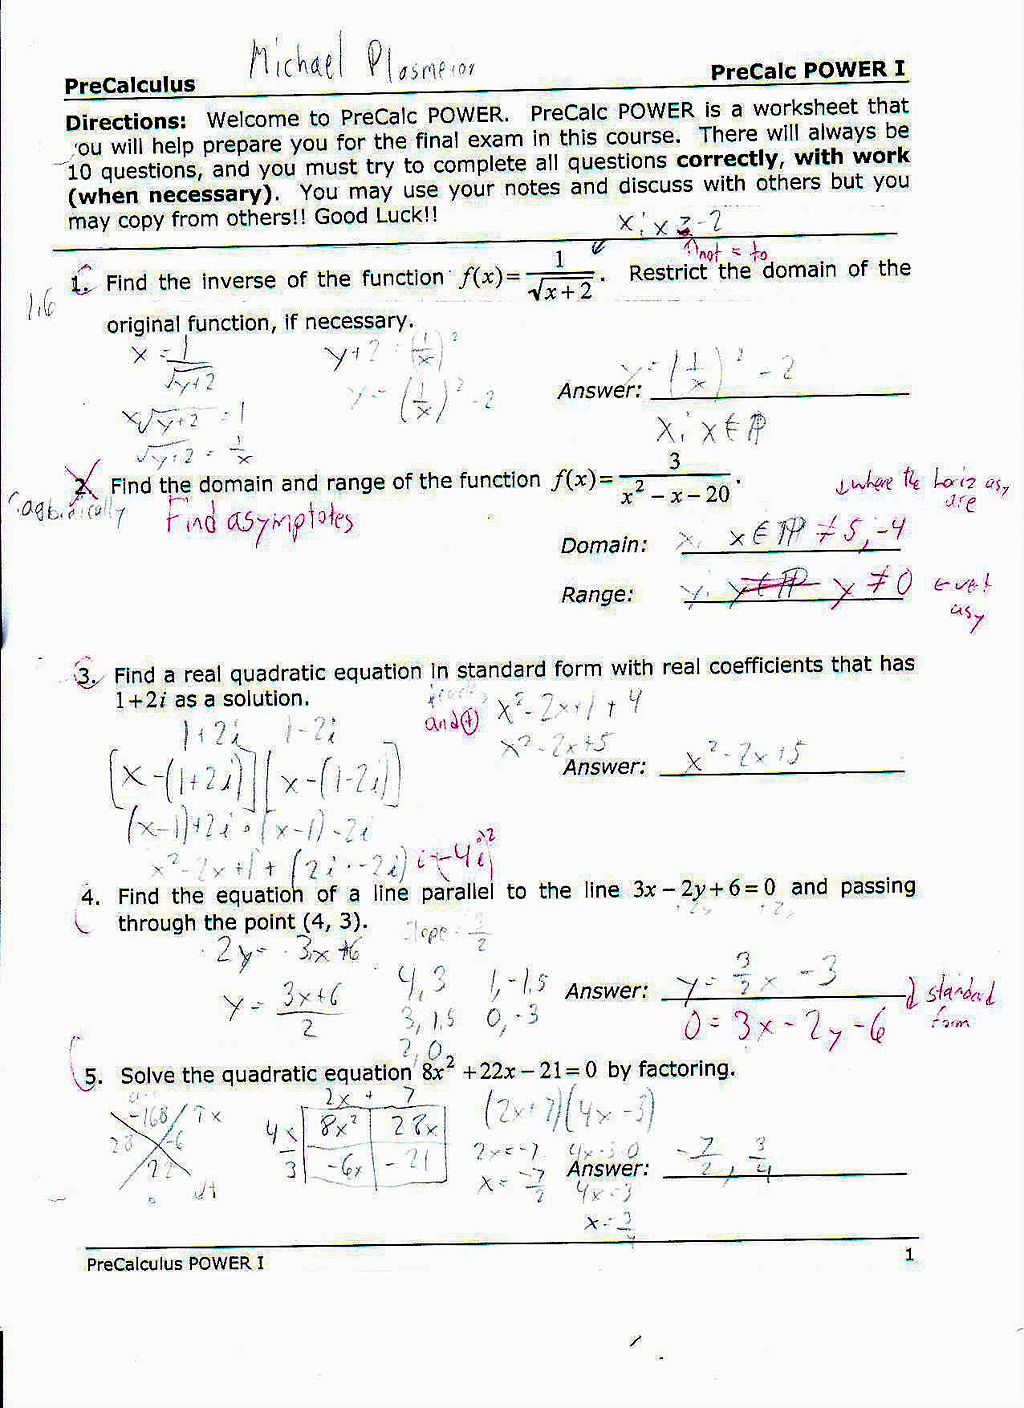 Michael Plasmeier
PreCalculus
PreCalc POWER I
Directions: Welcome to PreCalc POWER. PreCalc POWER is a worksheet that
ou will help prepare you for the final exam in this course. There will always be
10 questions, and you must try to complete all questions correctly, with work
(when necessary). You may use your notes and discuss with others but you
may copy from others!! Good Luck!!
x; x ≥ -2
↑not = to
1. Find the inverse of the function f(x)= 1/√(x+2). Restrict the domain of the
1,6
original function, if necessary.
x = 1/√(y+2)
y+2 = (1/x)²
x√(y+2) = 1
y = (1/x)² - 2
√(y+2) = 1/x
Answer: y = (1/x)² - 2
x; x∈ℝ
2. Find the domain and range of the function f(x)= 3/(x²-x-20).
Find asymptotes
↓where the horiz asy
are
Domain: x; x∈ℝ ≠ 5, -4
Range: y; y∈ℝ y ≠ 0
←vert
asy
3. Find a real quadratic equation in standard form with real coefficients that has
1+2i as a solution.
1+2i 1-2i
and
x²-2x+1+4
x²-2x+5
[x-(1+2i)][x-(1-2i)]
Answer: x²-2x+5
(x-1)+2i · (x-1)-2i
x²-2x+1+(2i·-2i)
-4i²
4. Find the equation of a line parallel to the line 3x-2y+6=0 and passing
through the point (4, 3).
slope = 3/2
2y = 3x+6
y = (3x+6)/2
4,3 1,-1.5
3,1.5 0,-3
2,0
Answer: y = 3/2 x - 3
0 = 3x - 2y - 6
standard
form
5. Solve the quadratic equation 8x²+22x-21=0 by factoring.
-168
28 -6
22
2x + 7
4x 8x² 28x
-3 -6x -21
(2x+7)(4x-3)
2x=-7 4x-3=0
x = -7/2 4x=3
x=3/4
Answer: -7/2, 3/4
PreCalculus POWER I
1